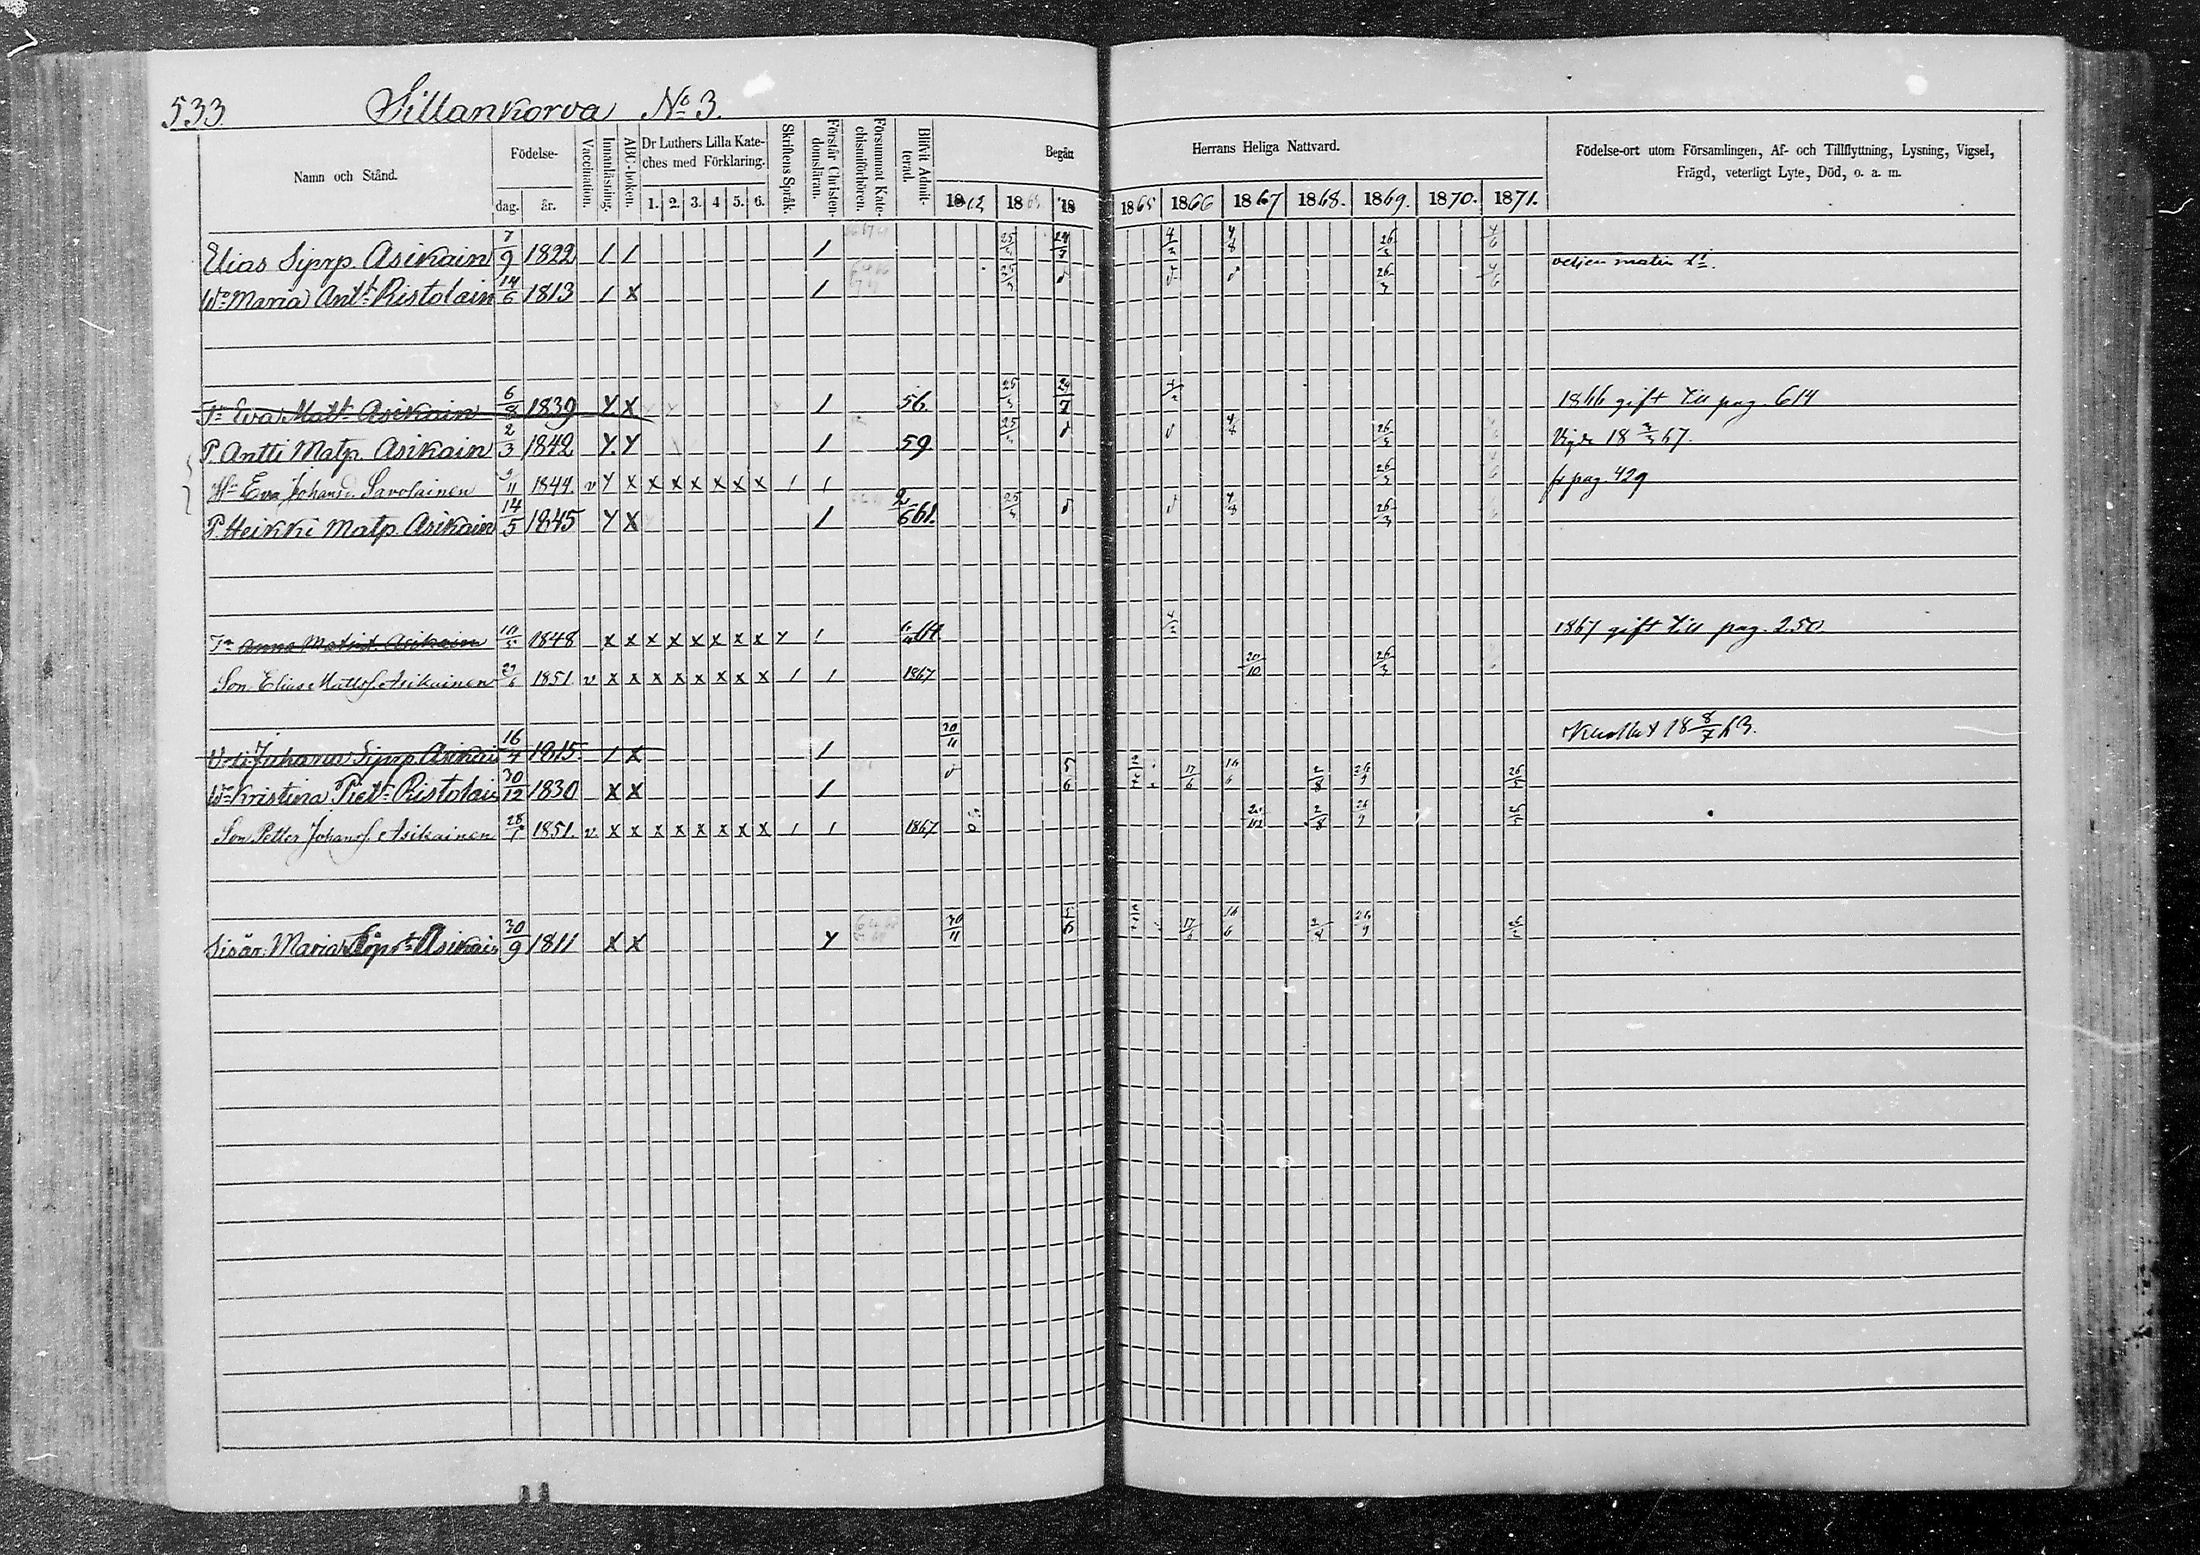 533 Sillankorva No 3.
Namn och Stånd.
Födelse-
dag. år.
Vaccination.
Innanläsning.
ABC-boken.
Dr Luthers Lilla Kate-
ches med Förklaring.
1. 2. 3. 4 5. 6.
Skriftens Språk.
Förstår Christen-
domsläran.
Försummat Kate-
chismiförhören.
Blifvit Admit-
terad.
Begått Herrans Heliga Nattvard.
1862 1863 18 1865 1866 1867 1868. 1869. 1870. 1871.
Födelse-ort utom Församlingen, Af- och Tillflyttning, Lysning, Vigsel,
Frägd, veterligt Lyte, Död, o. a. m.
Elias Siprp. Asikain 7/9 1822 / / / 25/3 24/7 4/2 4/8 26/3 4/6
Wo Maria Antt Ristolain 14/6 1813 / X / 25/3 26/3 4/6
Tr Eva Matt Asikain 6/8 1839 Y X / 56. 25/3 24/7 4/2 1866 gift till pag. 614
P. Antti Matp. Asikain 2/3 1842 Y. Y / 59. 25/3 4/8 26/3 Vigde 18 3/3 67.
Hu Eva Johansd. Savolainen 9/11 1844. v Y X X X X X X X / / 26/3 fr pag. 429
P. Heikki Matp. Asikain 14/5 1845 Y X / 2/6 61. 25/3 4/8 26/3
Tr Anna Matsd. Asikain 1848 X X X X X X X X Y / 64 4/2 1867 gift till pag. 250
Son Elias Mattsf. Asikainen 1851 v X X X X X X X X / / 1867 20/10 26/3
Veli Juhana Siprp. Asikai 16/4 1815. / X / 30/11 18 8/7 63.
Wo Kristina Piet. Ristolai 30/12 1830 X X / 17/6 2/8 26/9
Son Petter Johansf. Asikainen 28/1 1851. v. X X X X X X X X / / 1867 2/8 26/9
Sisär. Maria Siprt. Asikai 30/9 1811 X X Y 30/11 17/6 2/8 26/9